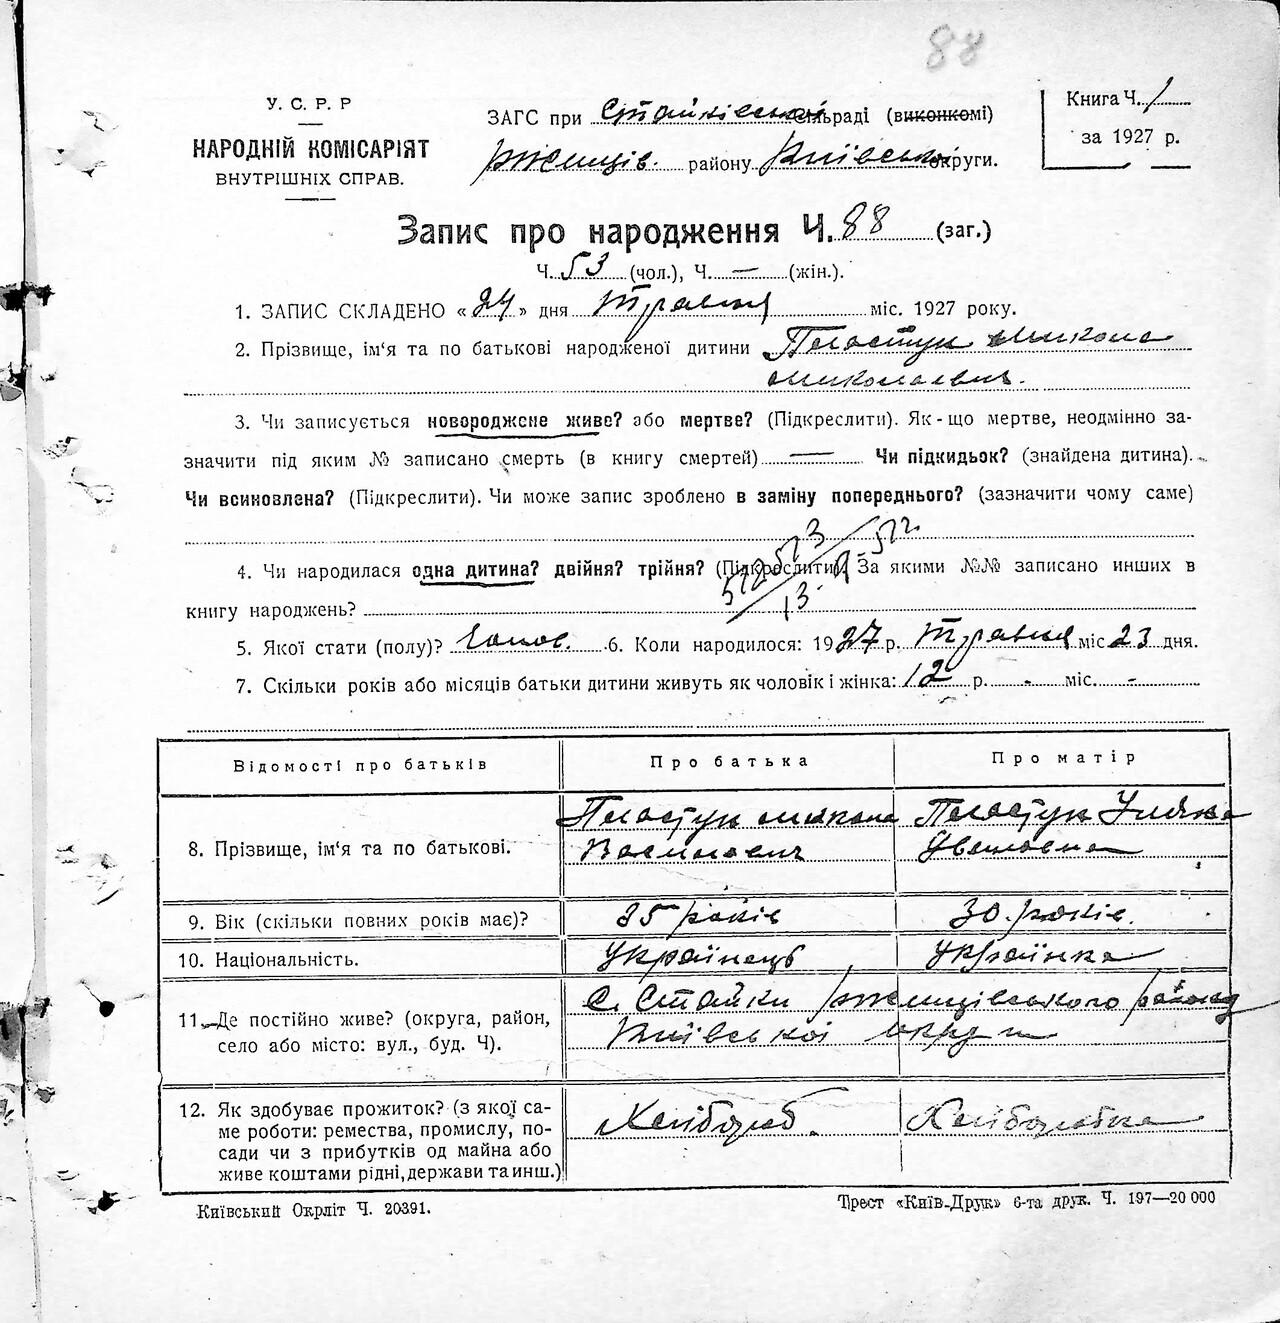 88
У. С. Р. Р
НАРОДНІЙ КОМІСАРІЯТ
ВНУТРІШНІХ СПРАВ.
ЗАГС при Стайківській сільраді (виконкомі)
Ржищів. району Київської округи.
Книга Ч. 1
за 1927 р.
Запис про народження Ч. 88 (заг.)
Ч. 53 (чол.), Ч. — (жін.).
1. ЗАПИС СКЛАДЕНО «24» дня Травня міс. 1927 року.
2. Прізвище, ім'я та по батькові народженої дитини Пластун Микола
Миколаевич.
3. Чи записується новороджене живе? або мертве? (Підкреслити). Як-що мертве, неодмінно за-
значити під яким № записано смерть (в книгу смертей) — Чи підкидьок? (знайдена дитина).
Чи всиновлена? (Підкреслити). Чи може запис зроблено в заміну попереднього? (зазначити чому саме)
4. Чи народилася одна дитина? двійня? трійня? (Підкреслити). За якими №№ записано инших в
книгу народжень?
5. Якої стати (полу)? Чолов. 6. Коли народилося: 1927 р. Травня міс 23 дня.
7. Скільки років або місяців батьки дитини живуть як чоловік і жінка: 12 р. - міс. -
Відомості про батьків Про батька Про матір
Пластун Микола Пластун Уляна
8. Прізвище, ім'я та по батькові. Васильевич
9. Вік (скільки повних років має)? 35 років 30 років.
10. Національність. Українець Українка
С. Стайки Ржищівського району
11. Де постійно живе? (округа, район, Київської округи
село або місто: вул., буд. Ч).
12. Як здобуває прожиток? (з якої са- Хлібороб. Хліборобка
ме роботи: ремества, промислу, по-
сади чи з прибутків од майна або
живе коштами рідні, держави та инш.)
Київський Окрліт Ч. 20391.
Трест «Київ-Друк» 6-та друк. Ч. 197—20 000